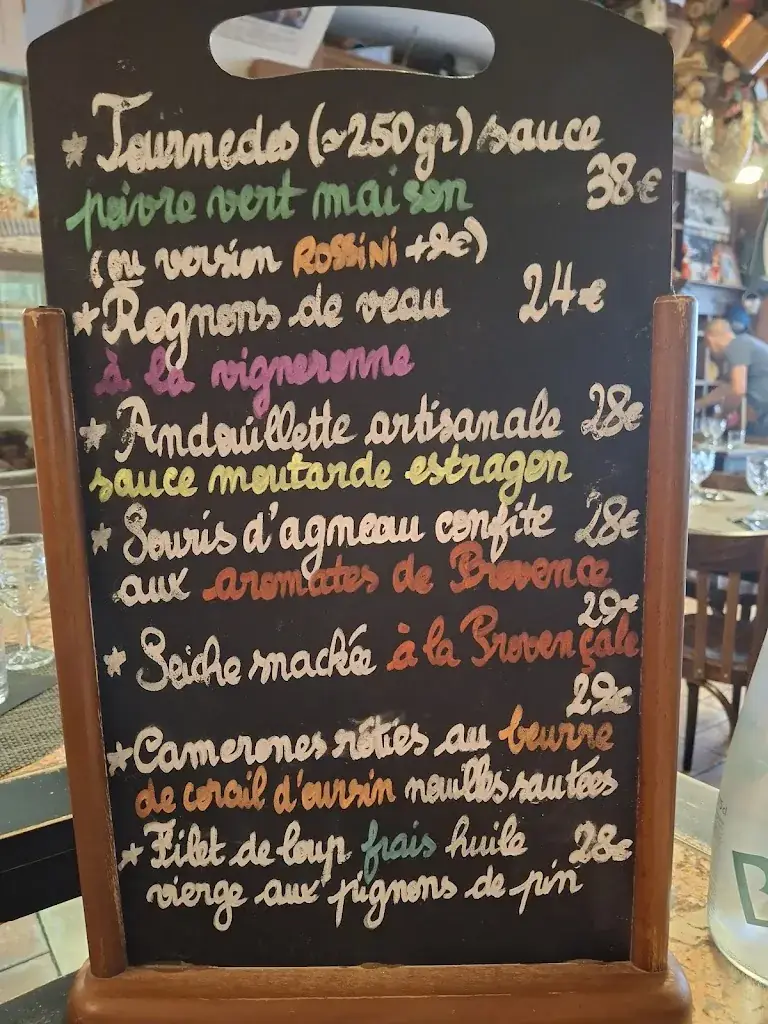 * Tournedos (~250gr) sauce
poivre vert maison 38€
(ou version ROSSINI +9€)
* Rognons de veau 24€
à la vigneronne
* Andouillette artisanale 28€
sauce moutarde estragon
* Souris d'agneau confite 28€
aux aromates de Provence
29€
* Seiche snackée à la Provençale
29€
* Camerones rôties au beurre
de corail d'oursin nouilles sautées
* Filet de loup frais huile 28€
vierge aux pignons de pin